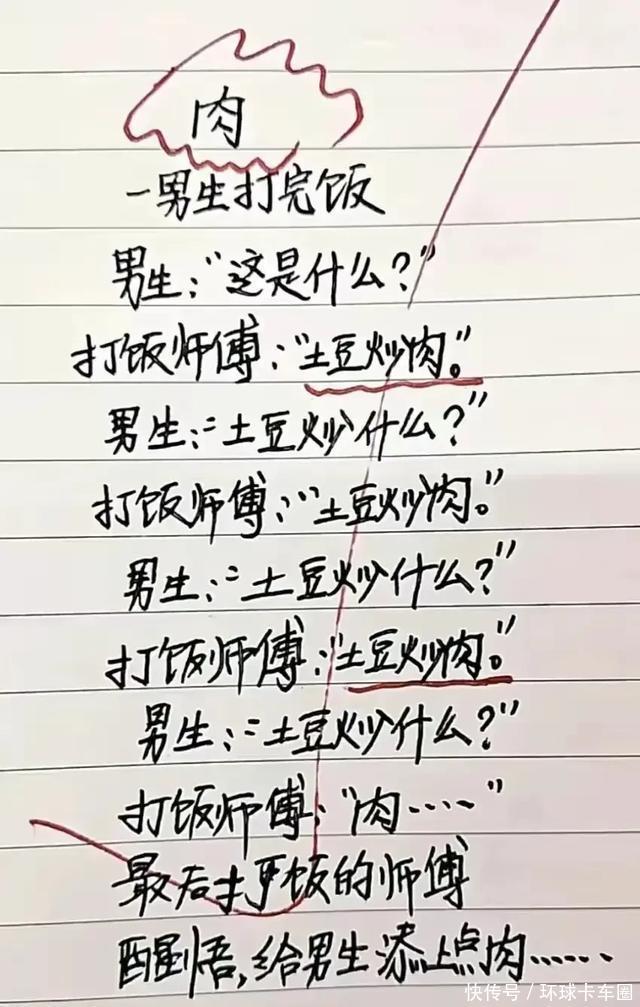 肉
一男生打完饭
男生：“这是什么？”
打饭师傅：“土豆炒肉。”
男生：“土豆炒什么？”
打饭师傅：“土豆炒肉。”
男生：“土豆炒什么？”
打饭师傅：“土豆炒肉。”
男生：“土豆炒什么？”
打饭师傅：“肉……”
最后打饭的师傅
醒悟，给男生添上点肉……
快传号/环球卡车圈